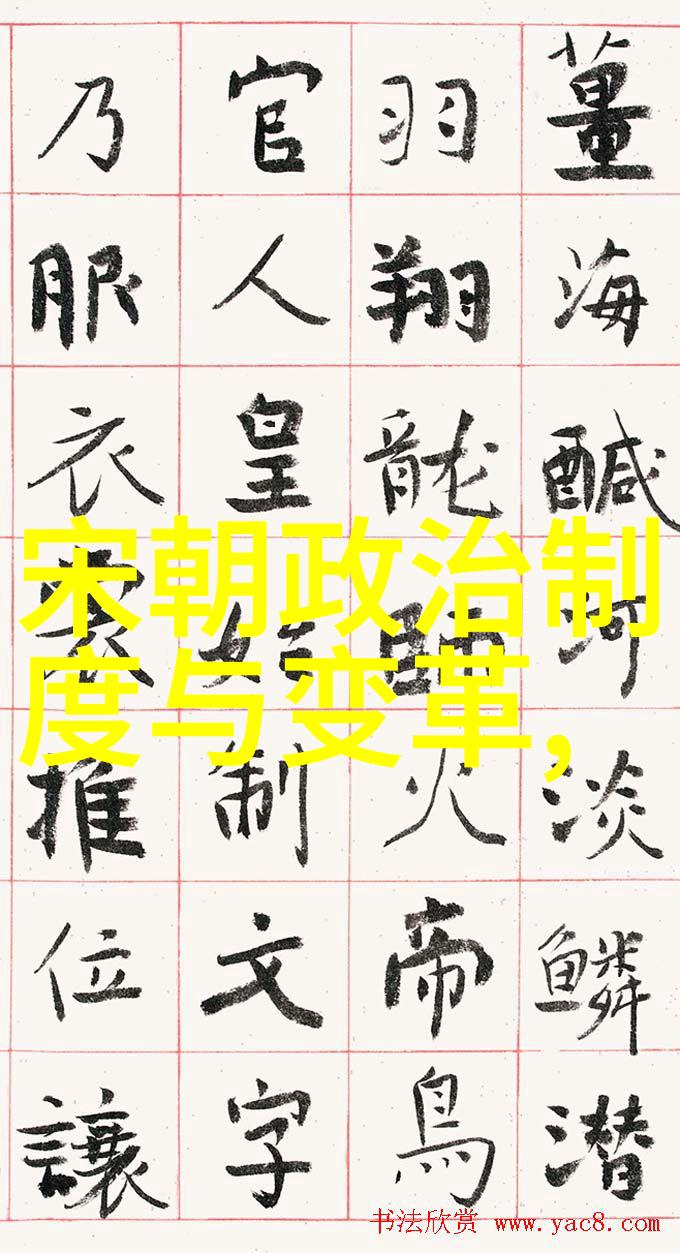 薑海醎河淡鳞潜
羽翔龍師火帝鳥
官人皇始制文字
乃服衣裳推位讓
宋朝政治制
度与变革,
书法欣赏 www.yac8.com